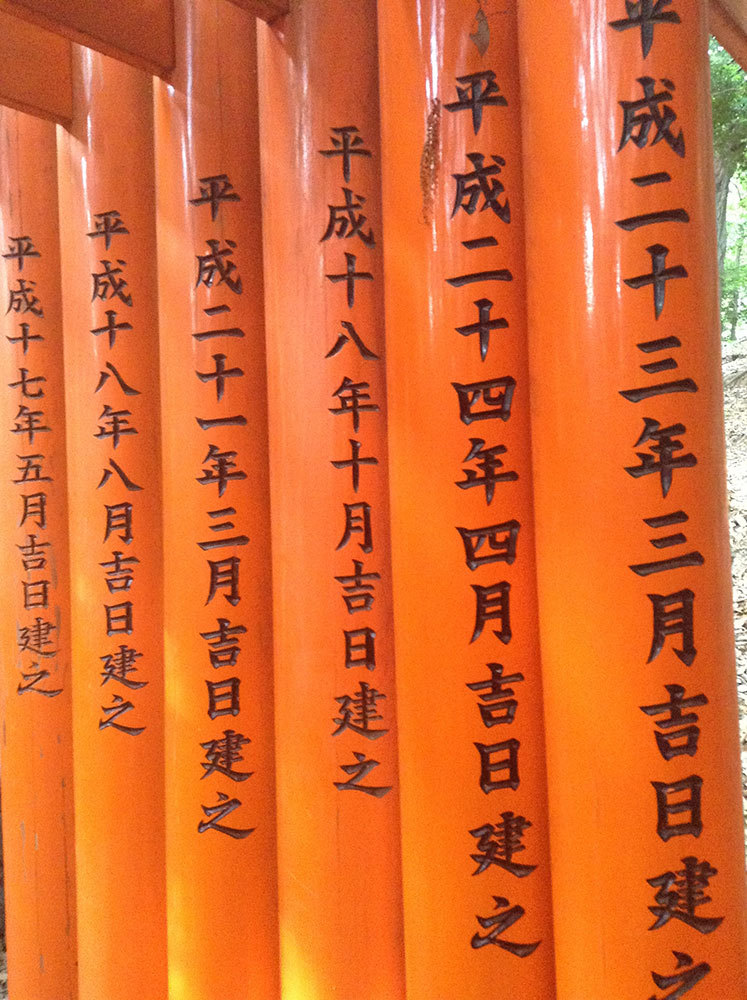 平成二十三年三月吉日建之
平成二十四年四月吉日建之
平成十八年十月吉日建之
平成二十一年三月吉日建之
平成十八年八月吉日建之
平成十七年五月吉日建之